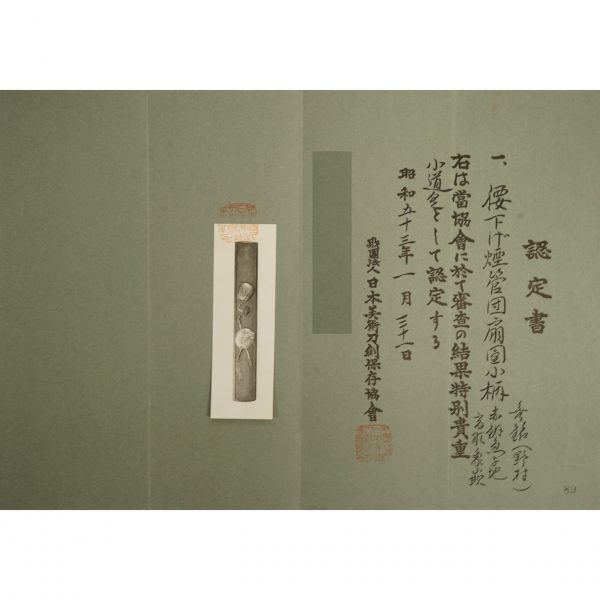 認定書
一、腰下げ煙管団扇図小柄
無銘(野村)
赤銅魚子地
高彫象嵌
右は當協會に於て審査の結果特別貴重
小道具として認定する
昭和五十三年一月三十一日
財團法人日本美術刀剣保存協會